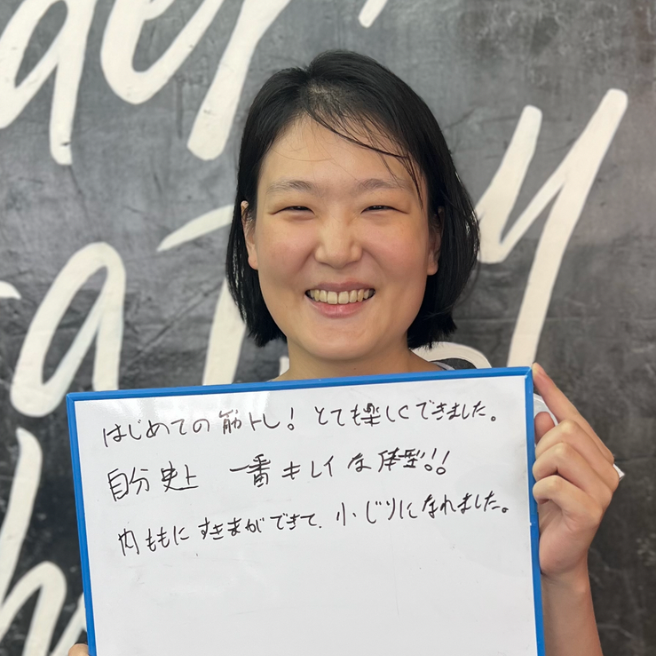 はじめての筋トレ! とても楽しくできました。
自分史上 一番キレイな体型!!
内ももにすきまができて、小じりになれました。